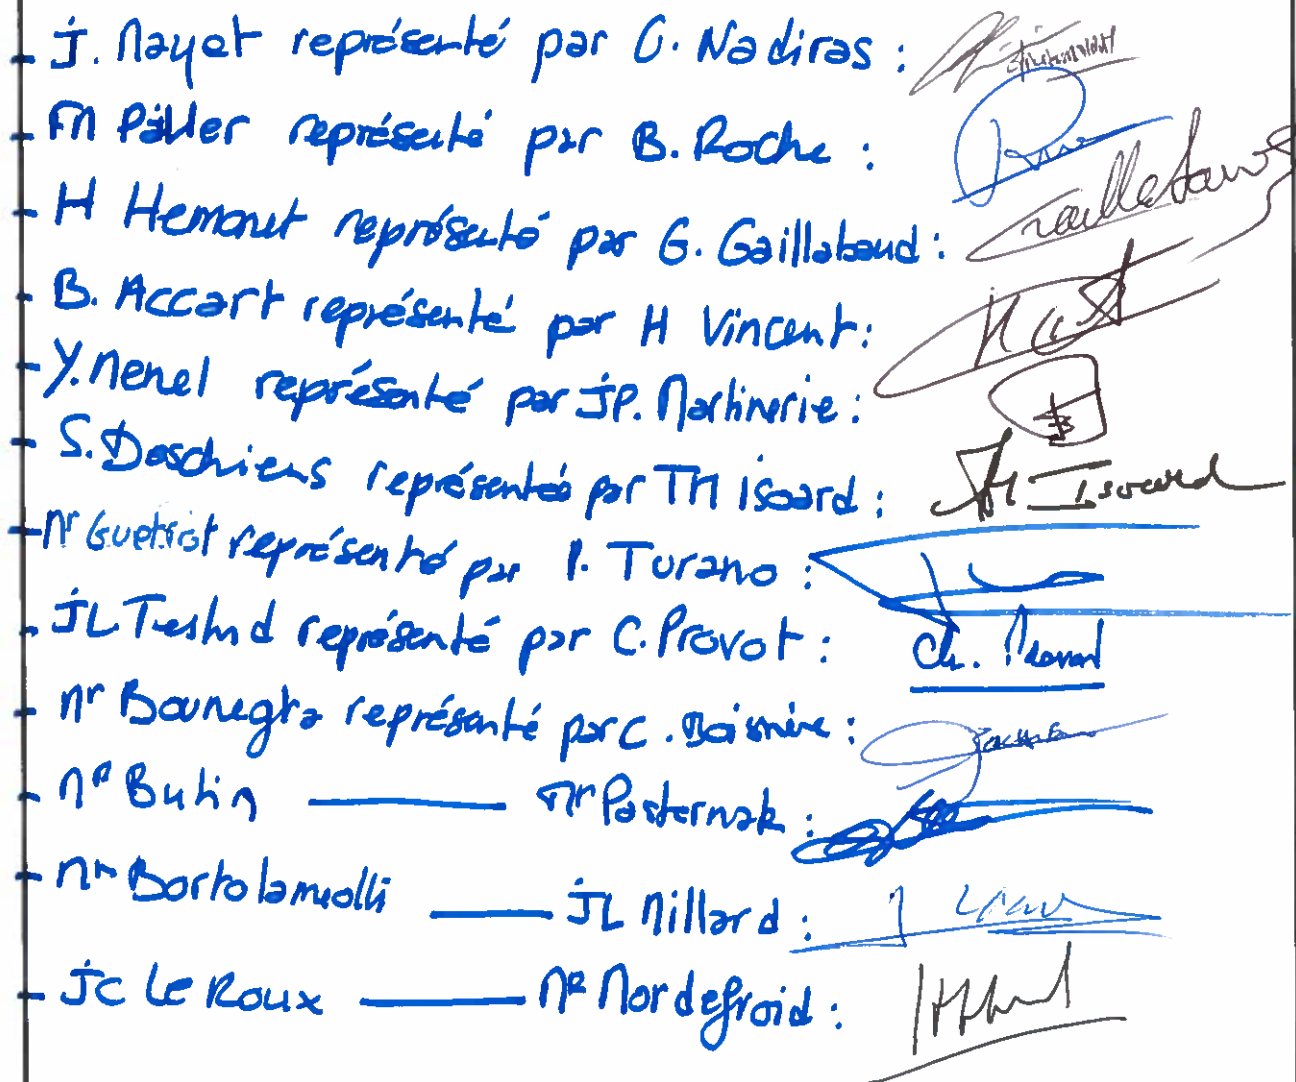 - J. Mayet représenté par C. Nadiras :
- FM Pähler représenté par B. Roche :
- H Hemonet représenté par G. Gaillabaud : Gaillabaud
- B. Accart représenté par H Vincent :
- Y. Menel représenté par JP. Martinerie :
- S. Deschiens représentée par TM Isoard : TM Isoard
- Mr Guetrot représenté par P. Turano :
- JL Testud représenté par C. Provot : Ch. Provot
- Mr Bounegta représenté par C. Boismène :
- Mr Butin —— Mr Pasternak :
- Mr Bortolameolli —— JL Millard :
- JC Le Roux —— Mr Mordefroid :